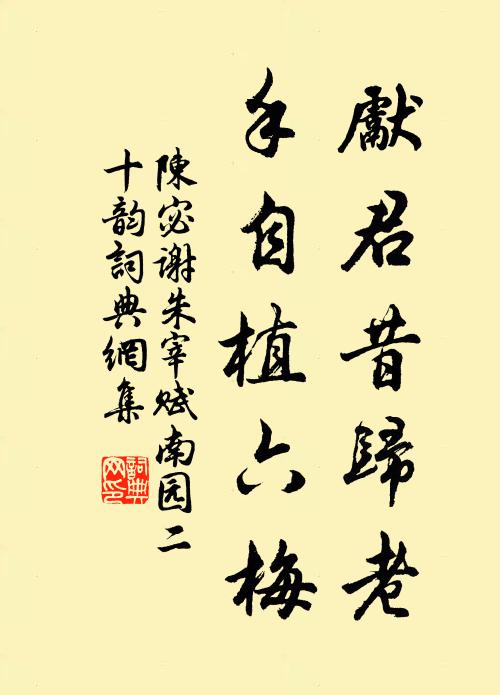 獻君昔歸老
手自植六梅
陳宓谢朱宰赋南园二
十韵詞典網集
詞典
网印